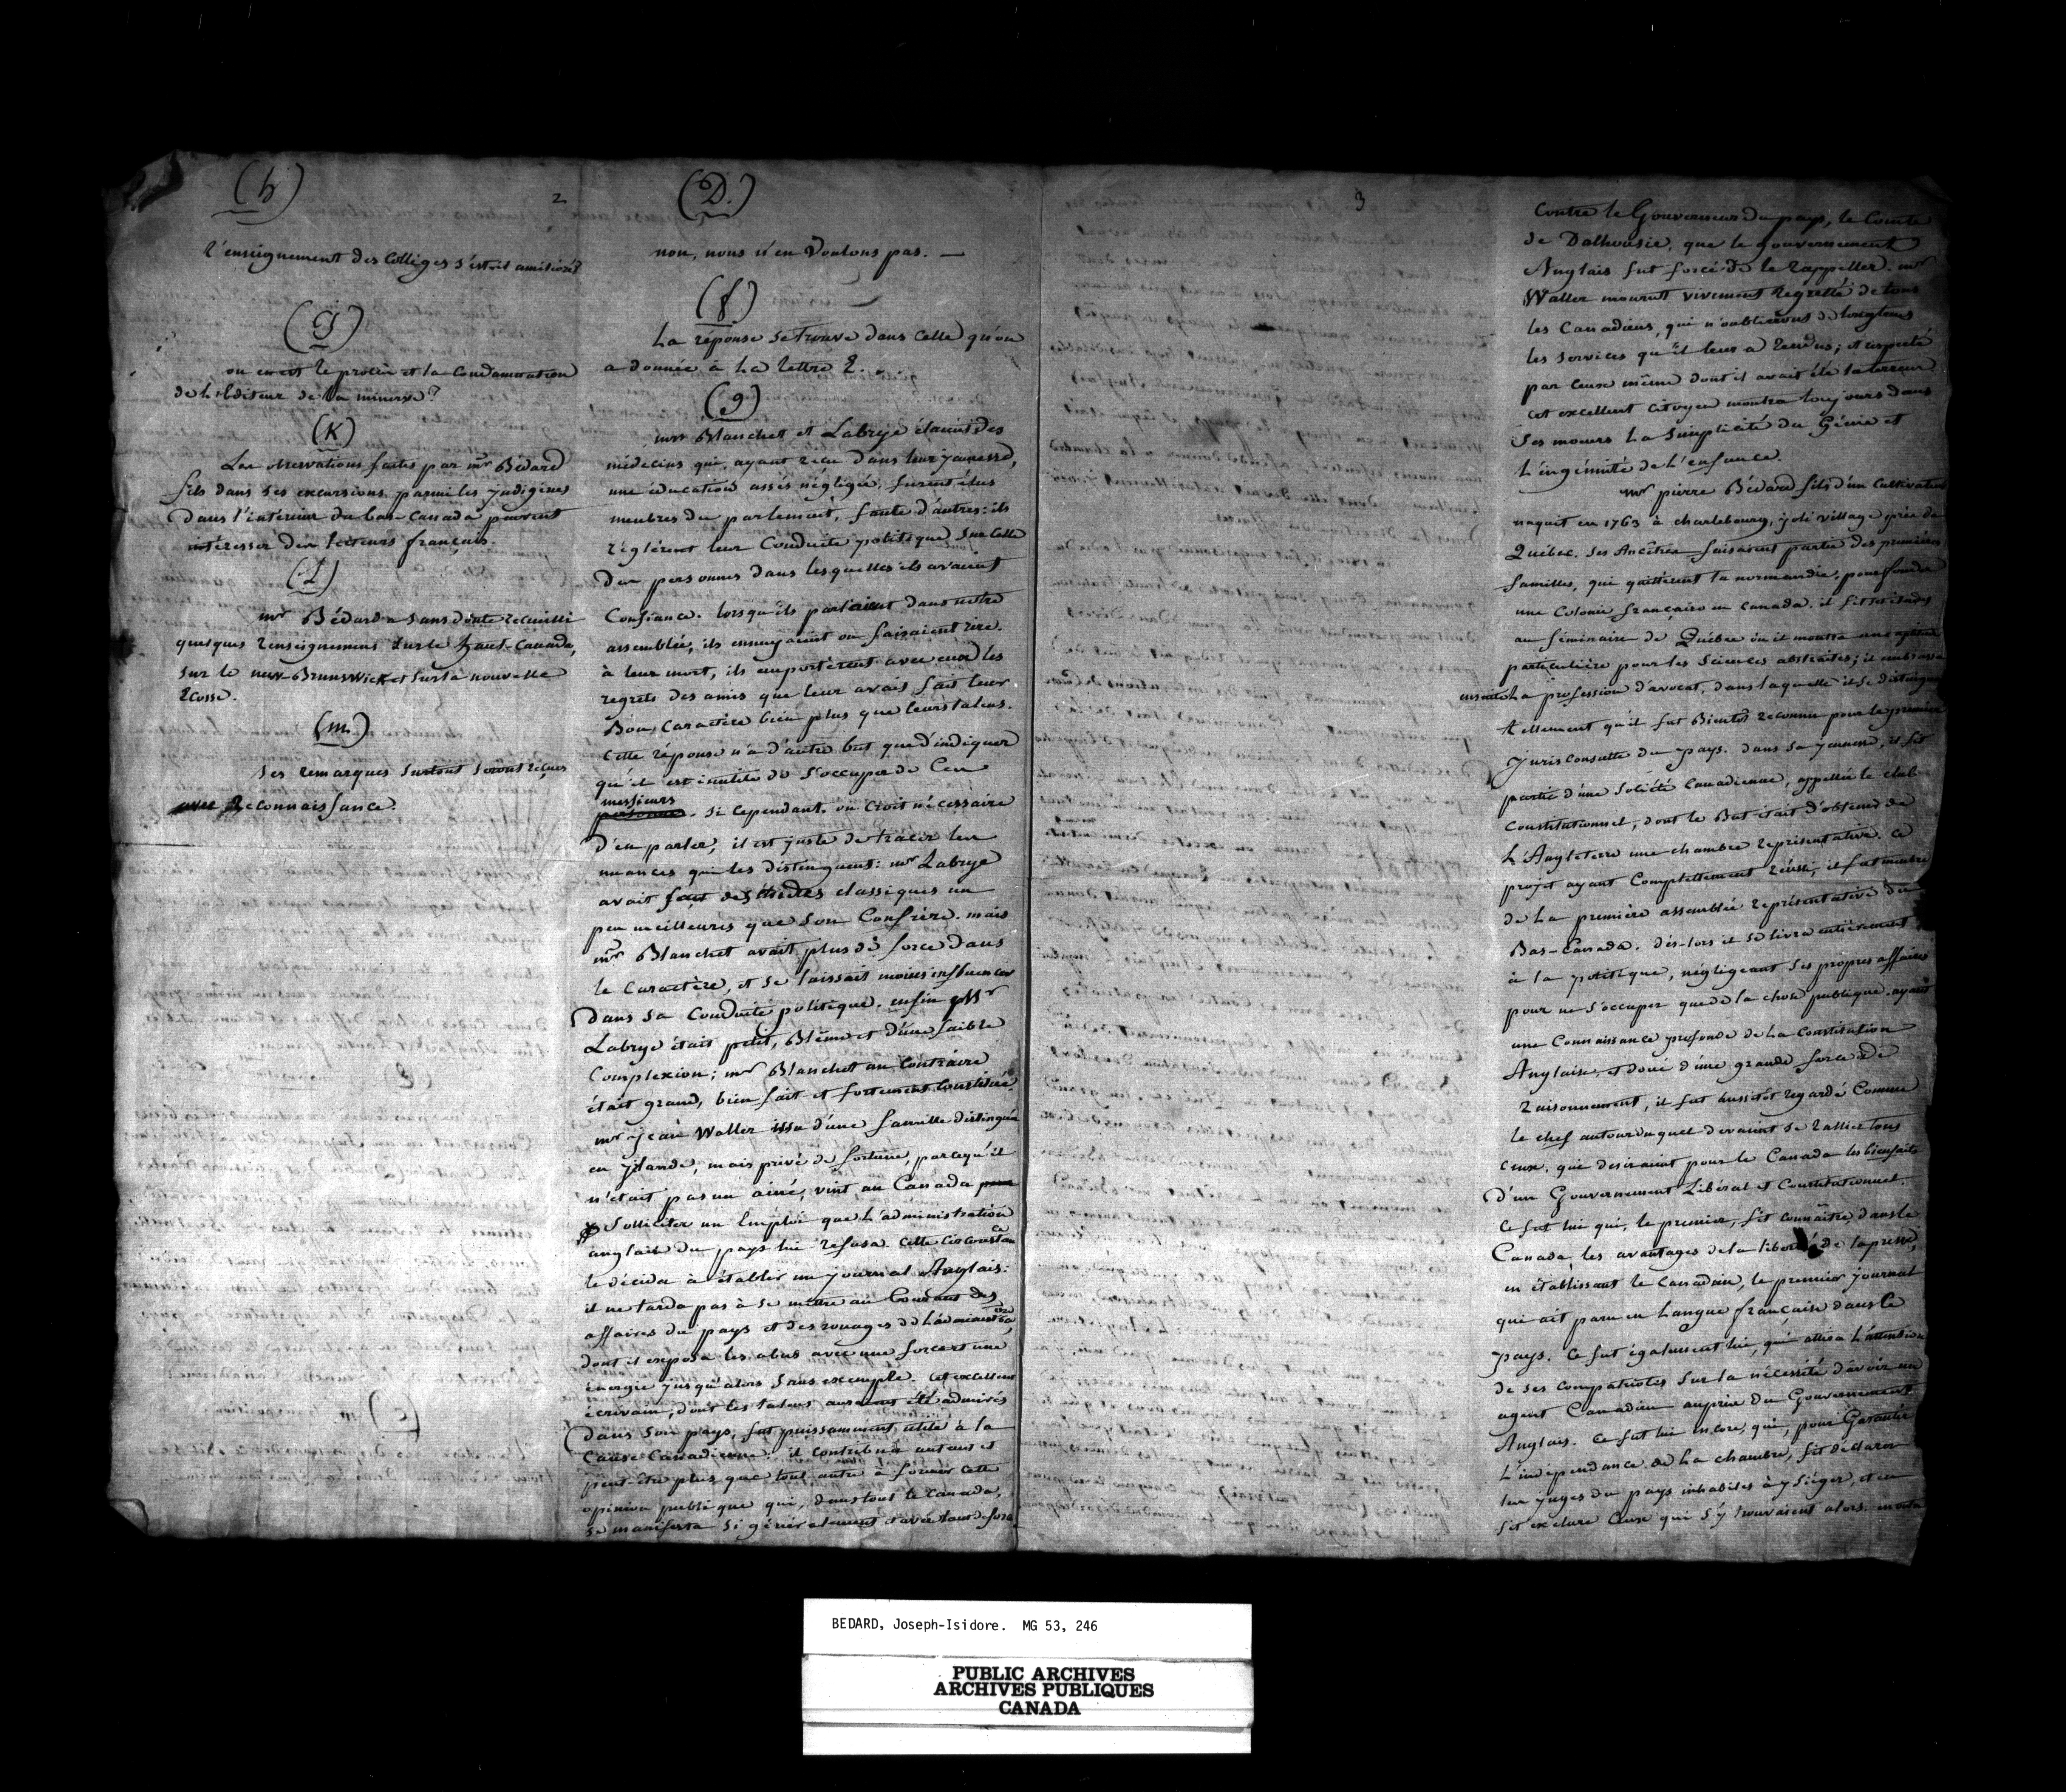 (h)
l'enseignement des Colléges s'est-il amélioré?
(J)
où en est le procès et la Condamnation
de l'Editeur de la minerve?
(K)
Les observations faites par mr Bédard
fils dans ses excursions parmi les indigènes
dans l'intérieur du bas-Canada peuvent
intéresser des lecteurs français.
(L)
mr Bédard a sans doute recueilli
quelques renseignemens sur le haut-Canada,
sur le new-Brunswick et sur la nouvelle
Ecosse.
(m)
ses remarques surtout seront reçues
avec Reconnaissance.
2
(D.)
non, nous n'en voulons pas. —
(f)
La réponse se trouve dans celle qu'on
a donnée à La lettre E.
(g)
mrs Blanchet et Labrye étaient des
médecins qui, ayant reçu dans leur jeunesse,
une éducation assés négligée, furent élus
membres du parlement, faute d'autres: ils
réglèrent leur Conduite politique sur Celle
des personnes dans lesquelles ils avaient
Confiance. lorsqu'ils parlaient dans notre
assemblée, ils ennuyaient ou faisaient rire.
à leur mort, ils emportèrent avec eux les
regrets des amis que leur avais fait leur
Bon Caractère bien plus que leurs talens.
Cette réponse n'a d'autre but que d'indiquer
qu'il est inutile de s'occuper de Ces
messieurs
personnes. si cependant, on croit nécessaire
d'en parler, il est juste de tracer les
nuances qui les distinguent: mr Labrye
avait fait des études classiques un
peu meilleures que son Confrère. mais
mr Blanchet avait plus de force dans
le Caractère, et se laissait moins influencer
dans sa Conduite politique. enfin Mr
Labrye était petit, Blême et d'une faible
Complexion; mr Blanchet au Contraire
était grand, bien fait et fortement Constitué.
mr Jean Waller issu d'une famille distinguée
en Irlande, mais privé de fortune, parcequ'il
n'était pas un ainé, vint au Canada pour
solliciter un Emploi que L'administration
anglaise du pays lui refusa. Cette Circonstance
le décida à établir un journal Anglais:
il ne tarda pas à se mettre au Courant des
affaires du pays et des rouages de L'administration,
dont il exposa les abus avec une force et une
énergie jusqu'alors sans exemple. Cet excellent
écrivain, dont les talens auraient été admirés
dans son pays, fut puissamment utile à la
Cause Canadienne. il contribua autant et
peut-être plus que tout autre à former cette
opinion publique qui, dans tout le Canada,
se manifesta si généralement et avec tant de force
3
Contre le Gouverneur du pays, le Comte
de Dalhousie, que le gouvernement
Anglais fut forcé de le rappeller. mr
Waller mourut vivement regretté de tous
les Canadiens, qui n'oublierons de longtems
les services qu'il leur a rendus; et respecté
par Ceux même dont il avait été la terreur
cet excellent citoyen montra toujours dans
ses moeurs La Simplicité du Génie et
L'ingénuité de L'enfance.
mr pierre Bédard fils d'un Cultivateur
naquit en 1763 à charlebourg, joli village près de
Québec. ses Ancêtres faisaient partie des premières
familles, qui quittèrent la normandie, pour fonder
une Colonie française en Canada. il fit ses études
au séminaire de Québec où il montra une aptitude
particulière pour les Sciences abstraites; il embrassa
ensuite La profession d'avocat, dans laquelle il se distingua
tellement qu'il fut Bientôt reconnu pour le premier
Jurisconsulte du pays. dans sa jeunesse, il fit
partie d'une Société Canadienne, appellée le club
Constitutionnel, dont le But était d'obtenir de
L'Angleterre une chambre représentative. ce
projet ayant Complettement réussi, il fut membre
de La première assemblée représentative du
Bas-Canada. dès-lors il se livra entièrement
à la politique, négligeant ses propres affaires
pour ne s'occuper que de la chose publique. ayant
une Connaissance profonde de La Constitution
Anglaise, et doué d'une grande force de
Raisonnement, il fut Aussitôt regardé Comme
le chef autour duquel devaient se rallier tous
Ceux, qui desiraient pour le Canada les bienfaits
d'un Gouvernement Libéral et Constitutionnel.
Ce fut lui qui, le premier, fit connaître dans le
Canada les avantages de la liberté de la presse,
en établissant le Canadien, le premier journal
qui ait paru en Langue française dans le
pays. Ce fut également lui, qui attira L'attention
de ses compatriotes sur la nécessité d'avoir un
agent Canadien auprès du Gouvernement
Anglais. Ce fut lui encore, qui, pour Garantir
L'indépendance de La chambre, fit déclarer
les juges du pays inhabiles à y siéger, et en
fit exclure Ceux qui s'y trouvaient alors.
BEDARD, Joseph-Isidore. MG 53, 246
PUBLIC ARCHIVES
ARCHIVES PUBLIQUES
CANADA